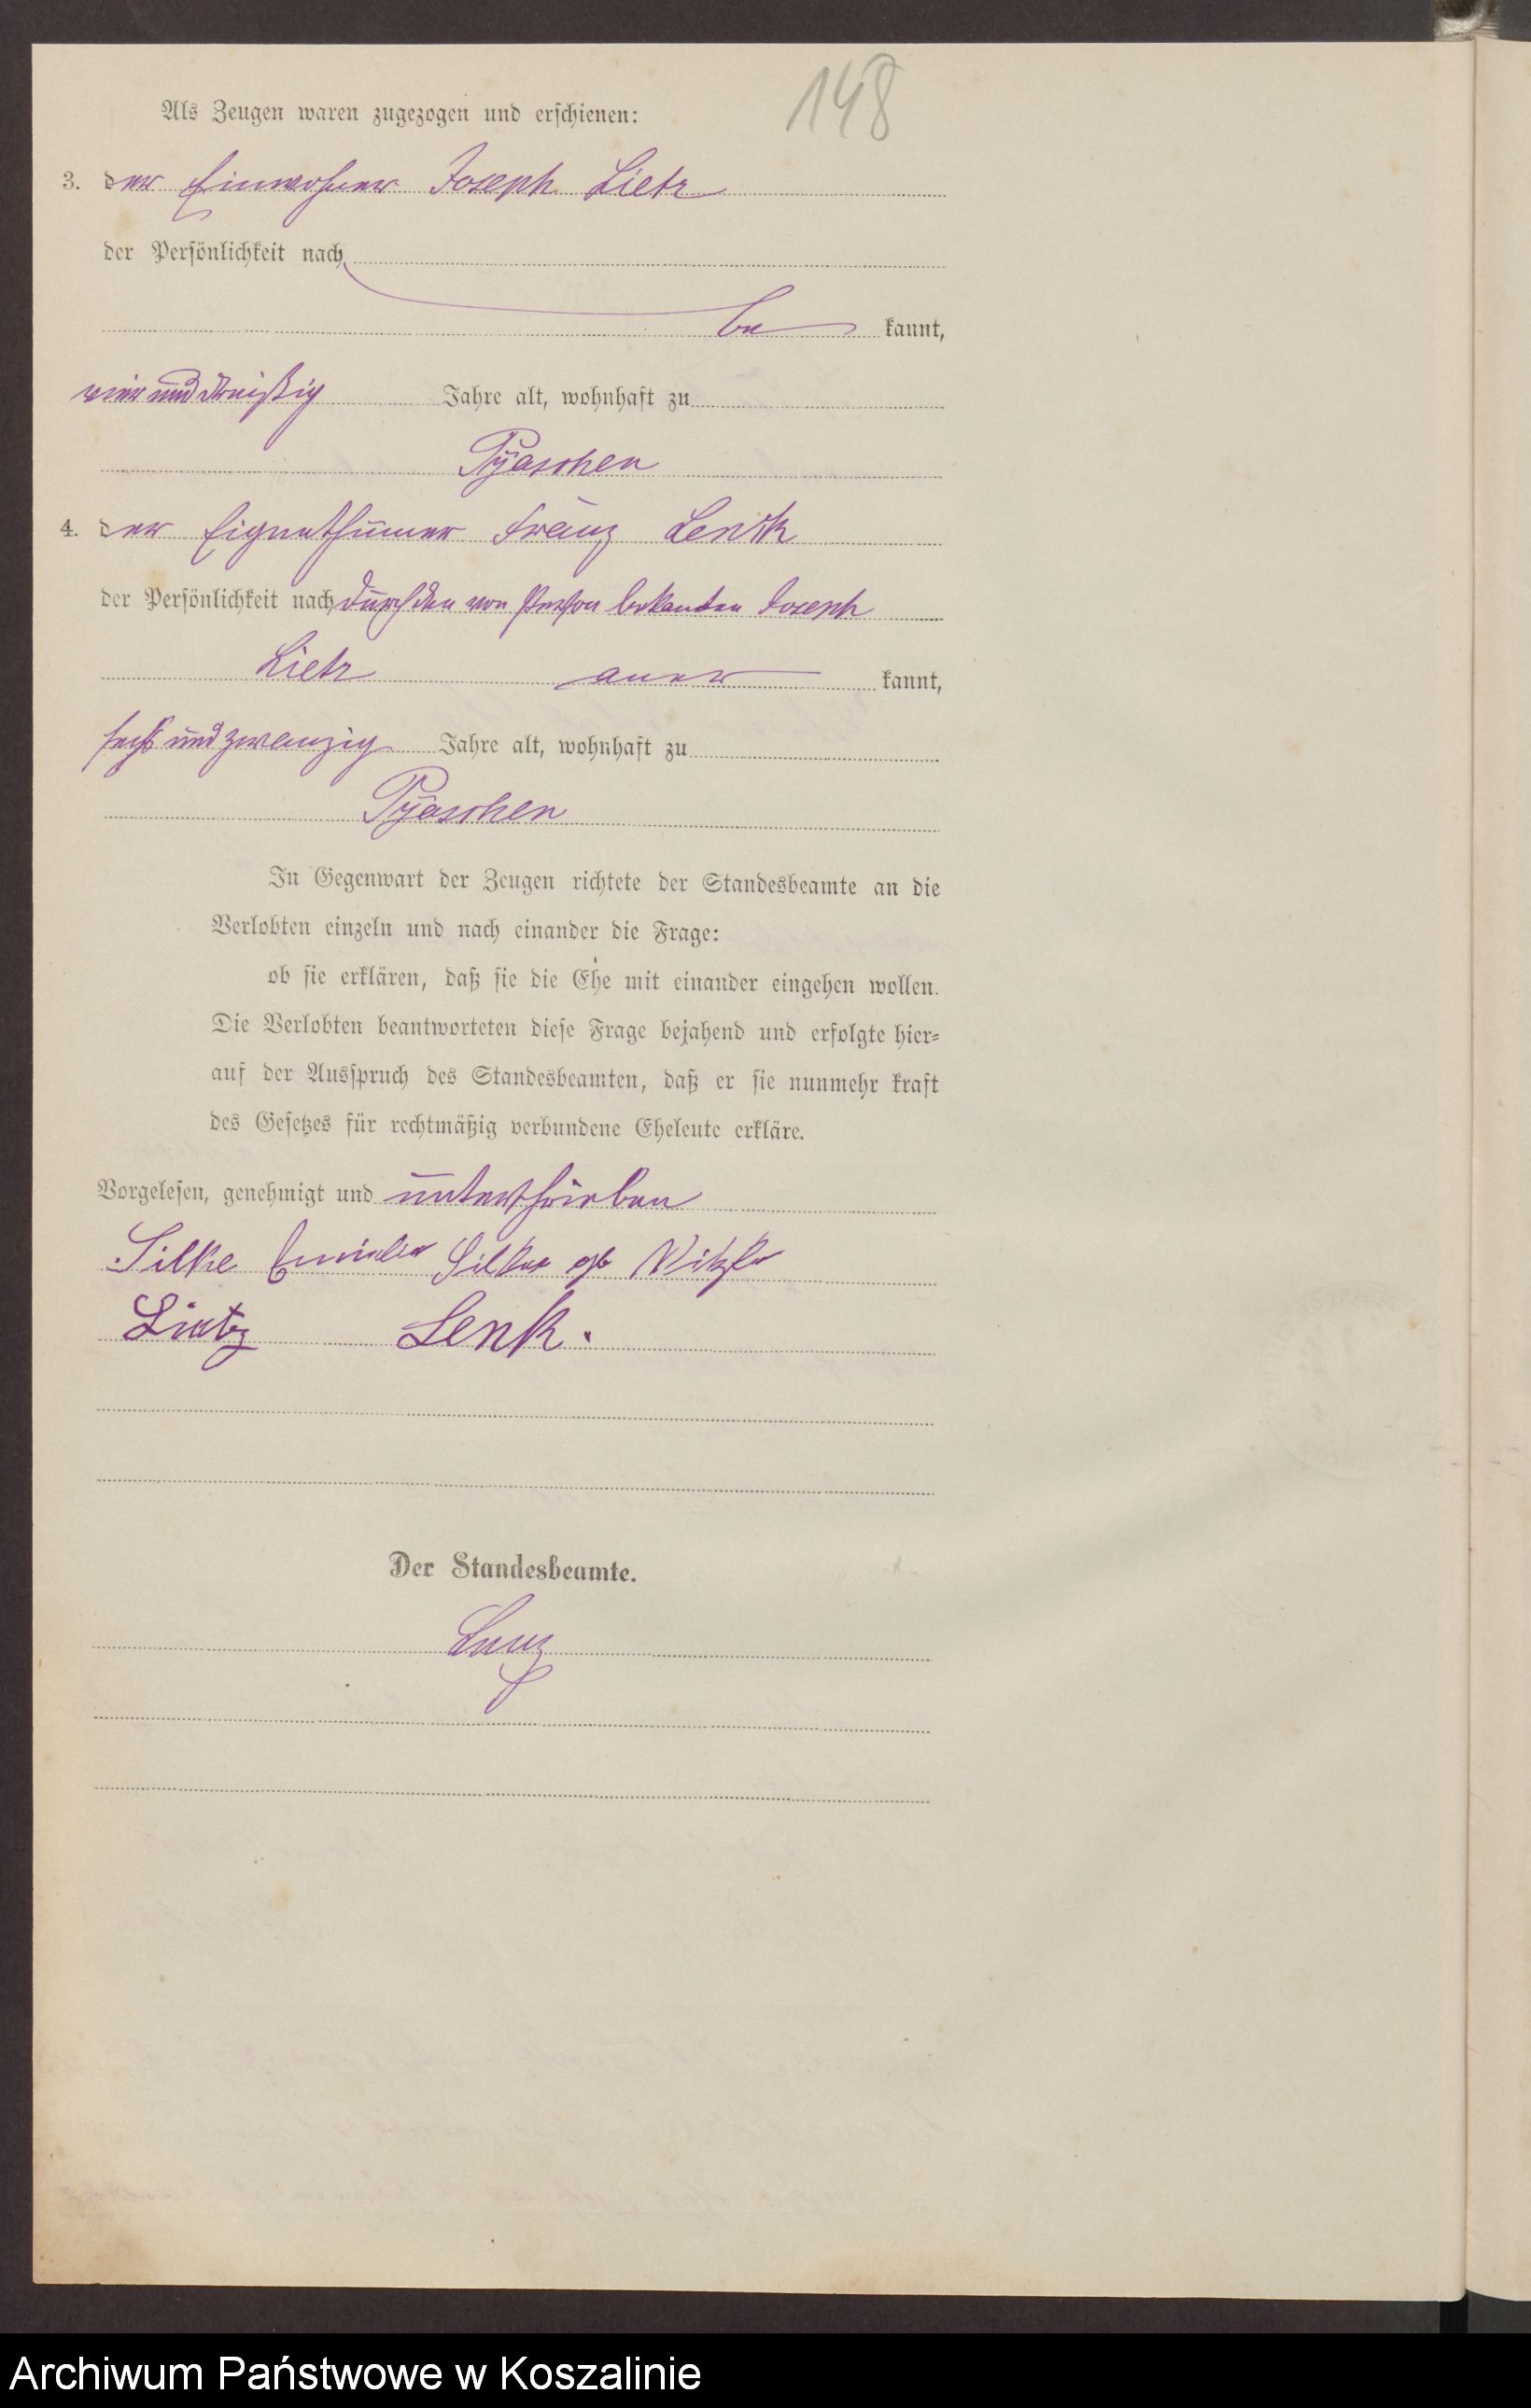 148
Als Zeugen waren zugezogen und erschienen:
3. der Einwohner Joseph Lietz
der Persönlichkeit nach
be kannt,
vier und dreißig Jahre alt, wohnhaft zu
Pyaschen
4. der Eigenthümer Franz Lenk
der Persönlichkeit nach durch den von Person bekanten Joseph
Lietz aner kannt,
sechs und zwanzig Jahre alt, wohnhaft zu
Pyaschen
In Gegenwart der Zeugen richtete der Standesbeamte an die
Verlobten einzeln und nach einander die Frage:
ob sie erklären, daß sie die Ehe mit einander eingehen wollen.
Die Verlobten beantworteten diese Frage bejahend und erfolgte hier-
auf der Ausspruch des Standesbeamten, daß er sie nunmehr kraft
des Gesetzes für rechtmäßig verbundene Eheleute erkläre.
Vorgelesen, genehmigt und unterschrieben
Silke Silke geb
Lietz Lenk.
Der Standesbeamte.
Archiwum Państwowe w Koszalinie